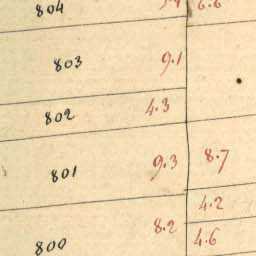 804 6.6
803 9.1
802 4.3
801 9.3 8.7
4.2
800 8.2
4.6